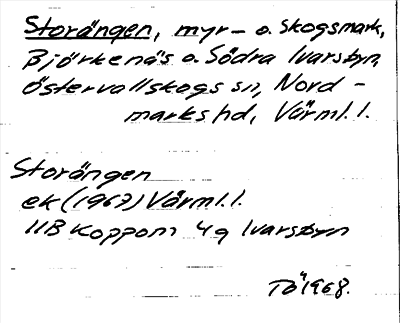 Storängen, myr- o. skogsmark,
Björkenäs o. Södra Ivarsbyn,
Östervallskogs sn, Nord-
marks hd, Värml. l.
Storängen
ek (1967) Värml. l.
11B Koppom 4g Ivarsbyn
Tö 1968.